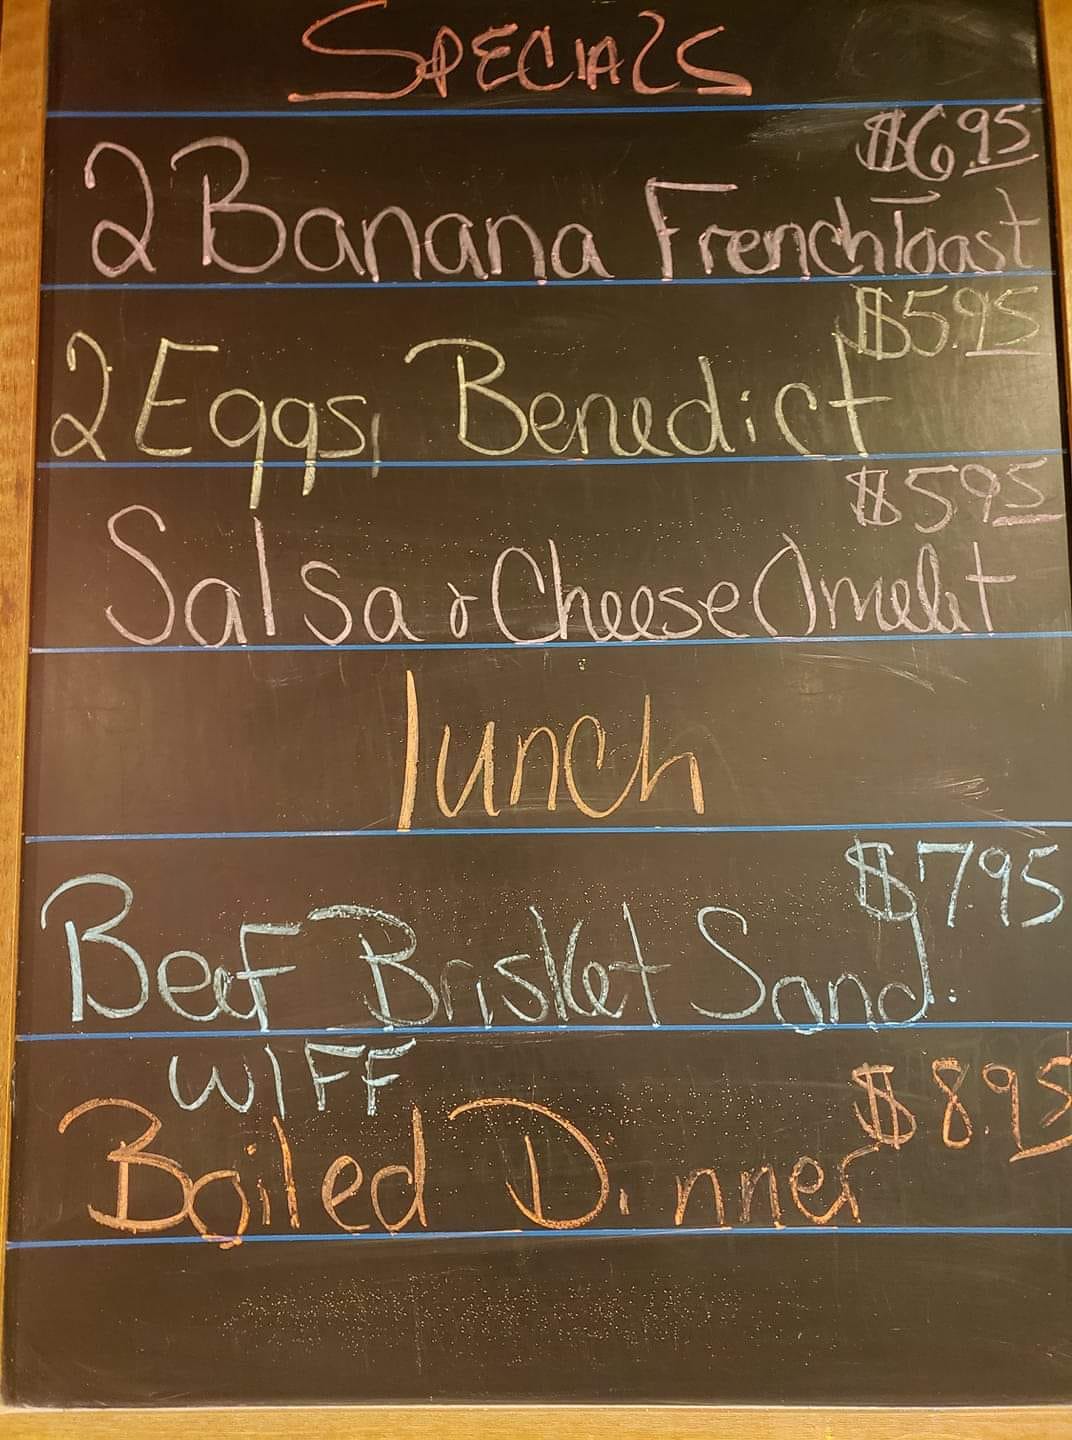 SPECIALS
$6.95
2 Banana French Toast
$5.95
2 Eggs, Benedict
$5.95
Salsa & Cheese Omelet
lunch
$7.95
Beef Brisket Sand.
W/FF
$8.95
Boiled Dinner